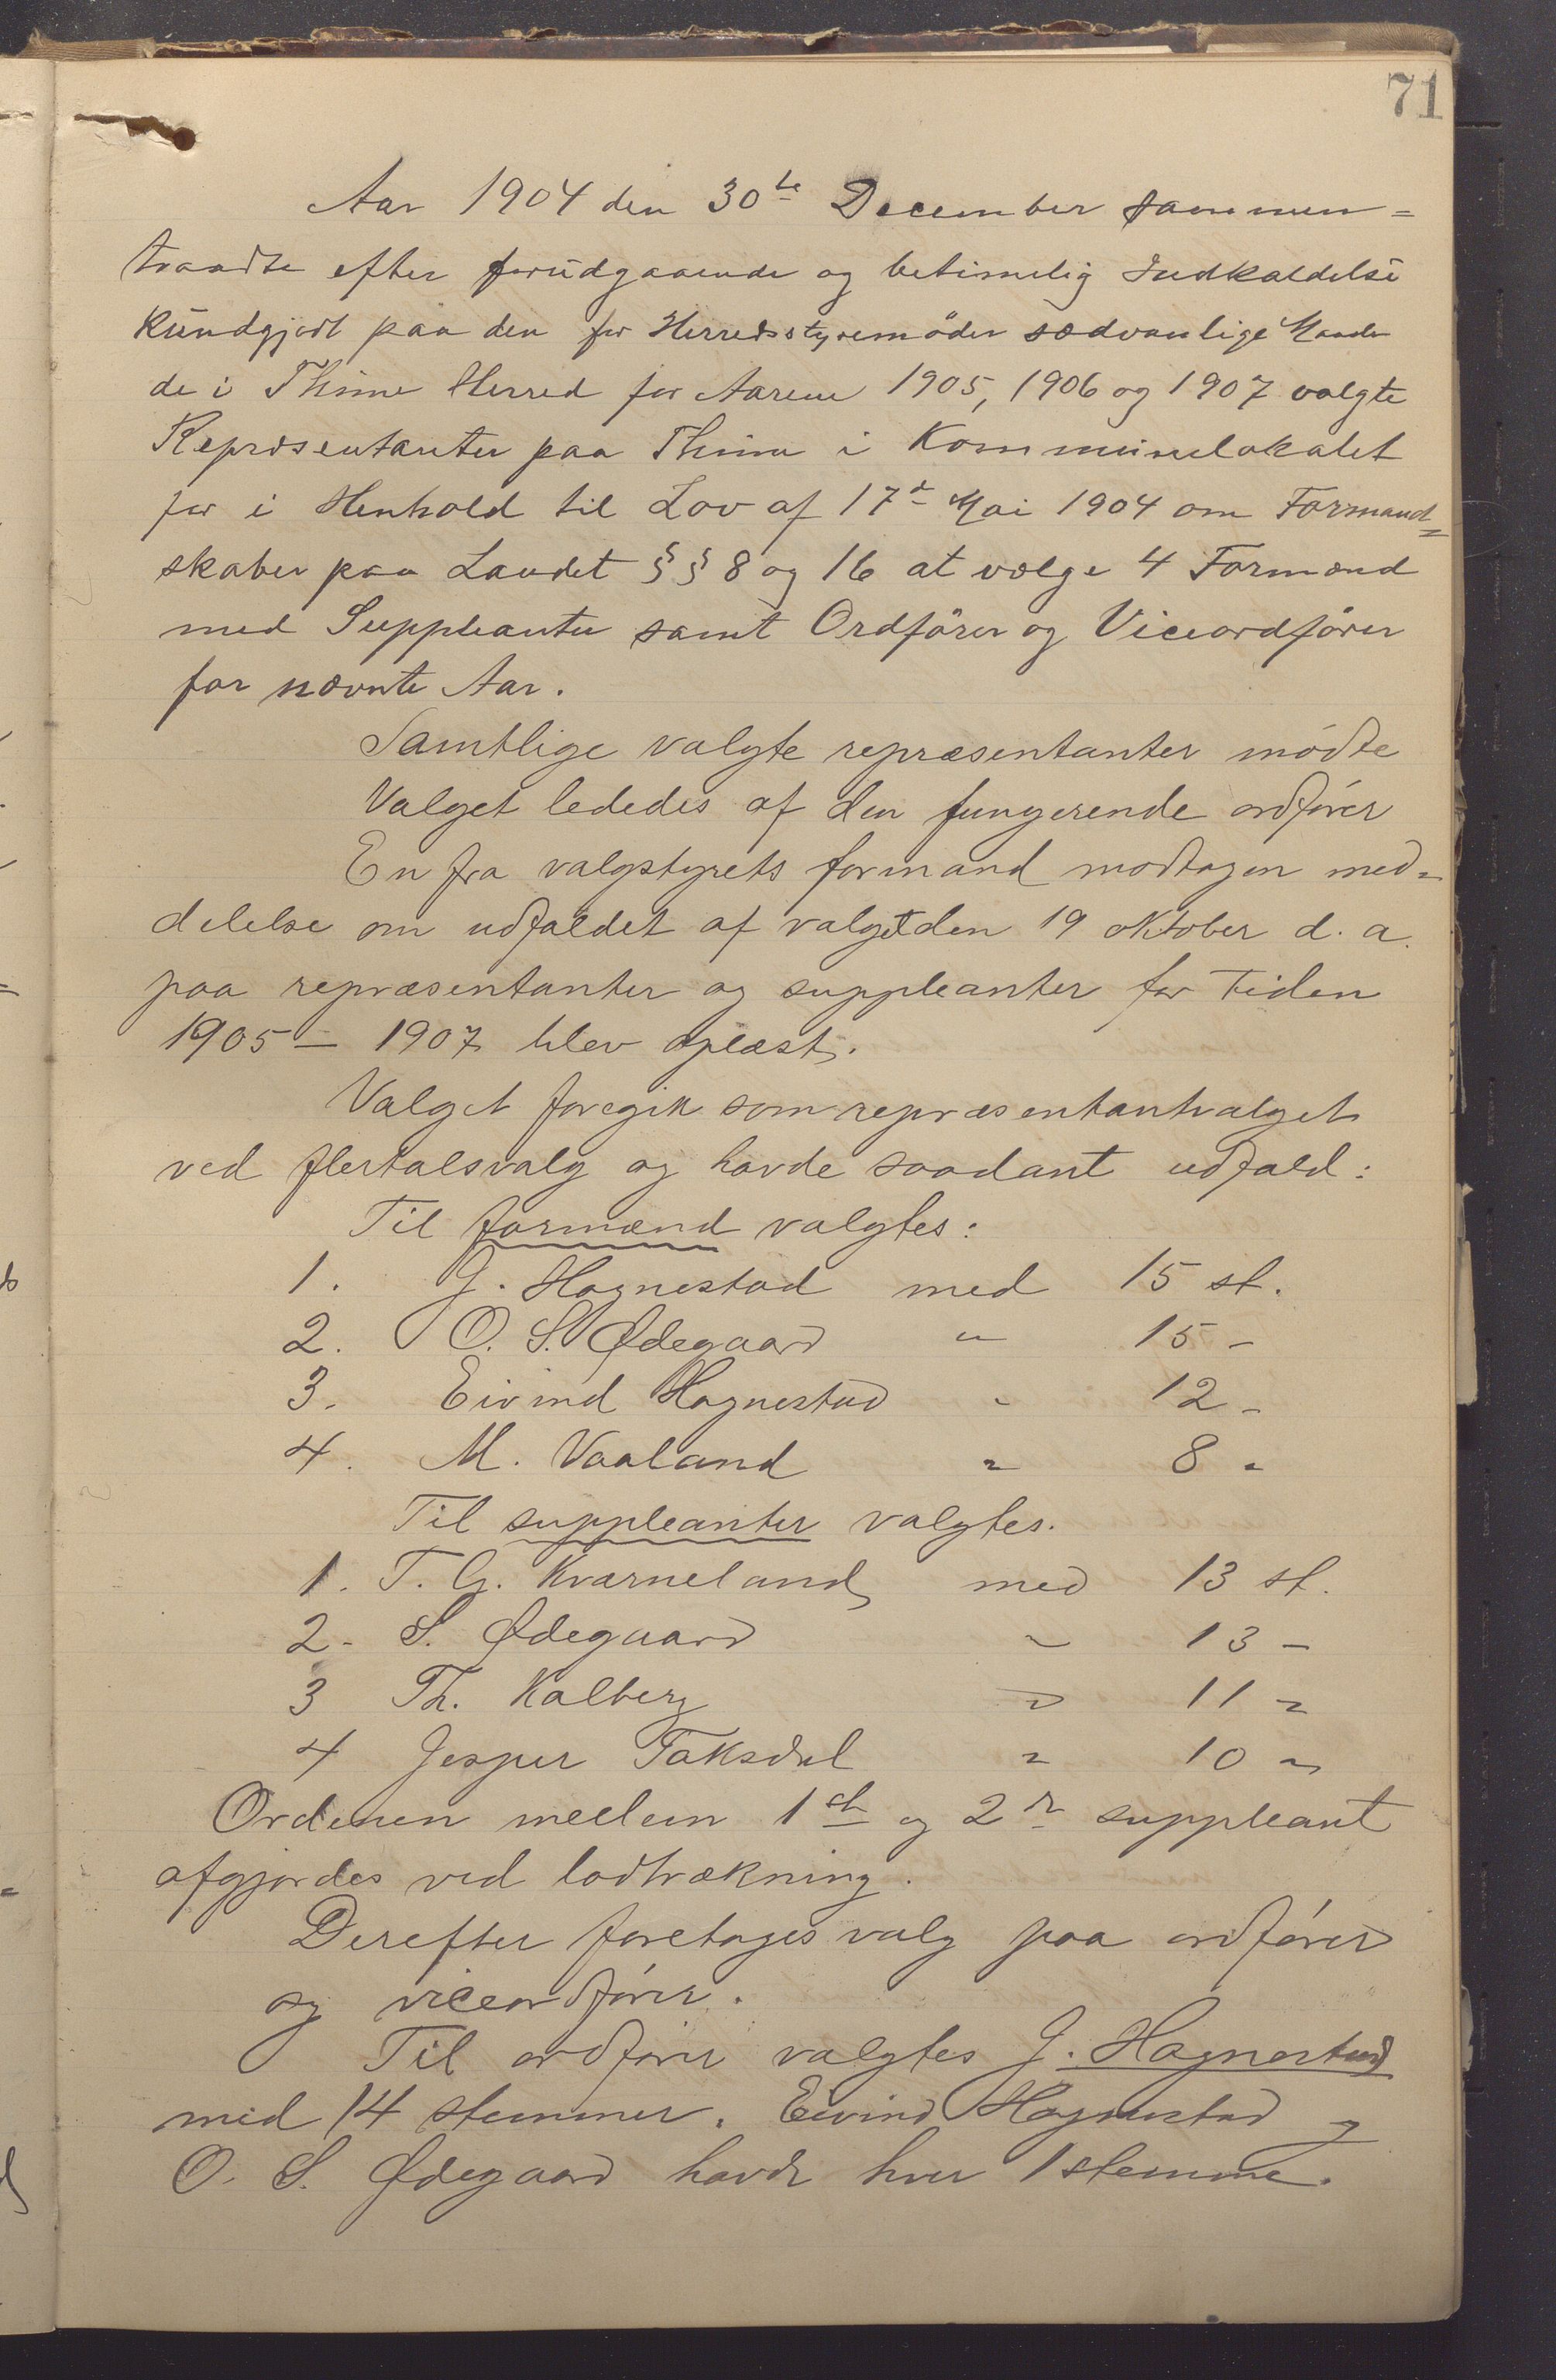 71
Aar 1904 den 30te December sammen=
traadte efter forudgaaende og betimelig Indkaldelse
kundgjort paa den for Herredsstyremøder sædvanlige Maade
de i Thime Herred for Aarene 1905, 1906 og 1907 valgte
Repræsentanter paa Thime i Kommunelokalet
for i Henhold til Lov af 17de Mai 1904 om Formand=
skaber paa Landet §§ 8 og 16 at vælge 4 Formænd
med Suppleanter samt Ordfører og Viceordfører
for nævnte Aar.
Samtlige valgte repræsentanter mødte
Valget lededes af den fungerende ordfører
En fra valgstyrets formand modtagen med=
delelse om udfaldet af valget den 19 oktober d. a.
paa repræsentanter og suppleanter for tiden
1905 – 1907 blev oplæst.
Valget foregik som repræsentantvalget
ved flertalsvalg og havde saadant udfald:
Til formænd valgtes:
1. G. Hognestad med 15 st.
2. O. S. Ødegaard " 15 –
3. Eivind Hognestad " 12 –
4. M. Vaaland " 8 "
Til suppleanter valgtes.
1. T. G. Kværneland med 13 st.
2. S. Ødegaard " 13 –
3 Th. Kalberg " 11 "
4 Jesper Taksdal " 10 "
Ordenen mellem 1ste og 2den suppleant
afgjordes ved lodtrækning.
Derefter foretoges valg paa ordfører
og viceordfører.
Til ordfører valgtes G. Hognestad
med 14 stemmer. Eivind Hognestad og
O. S. Ødegaard havde hver 1 stemme.